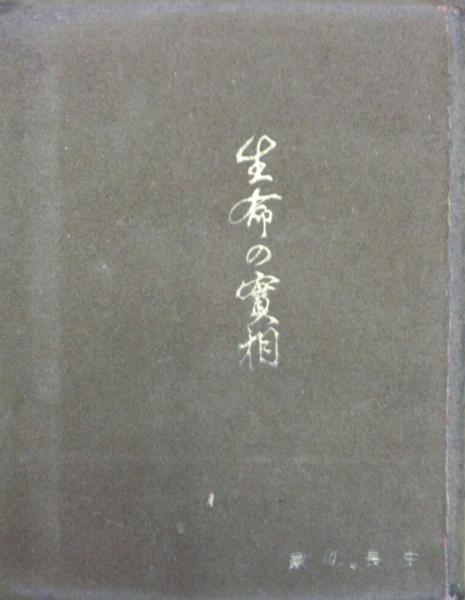 生命の實相
生長の家